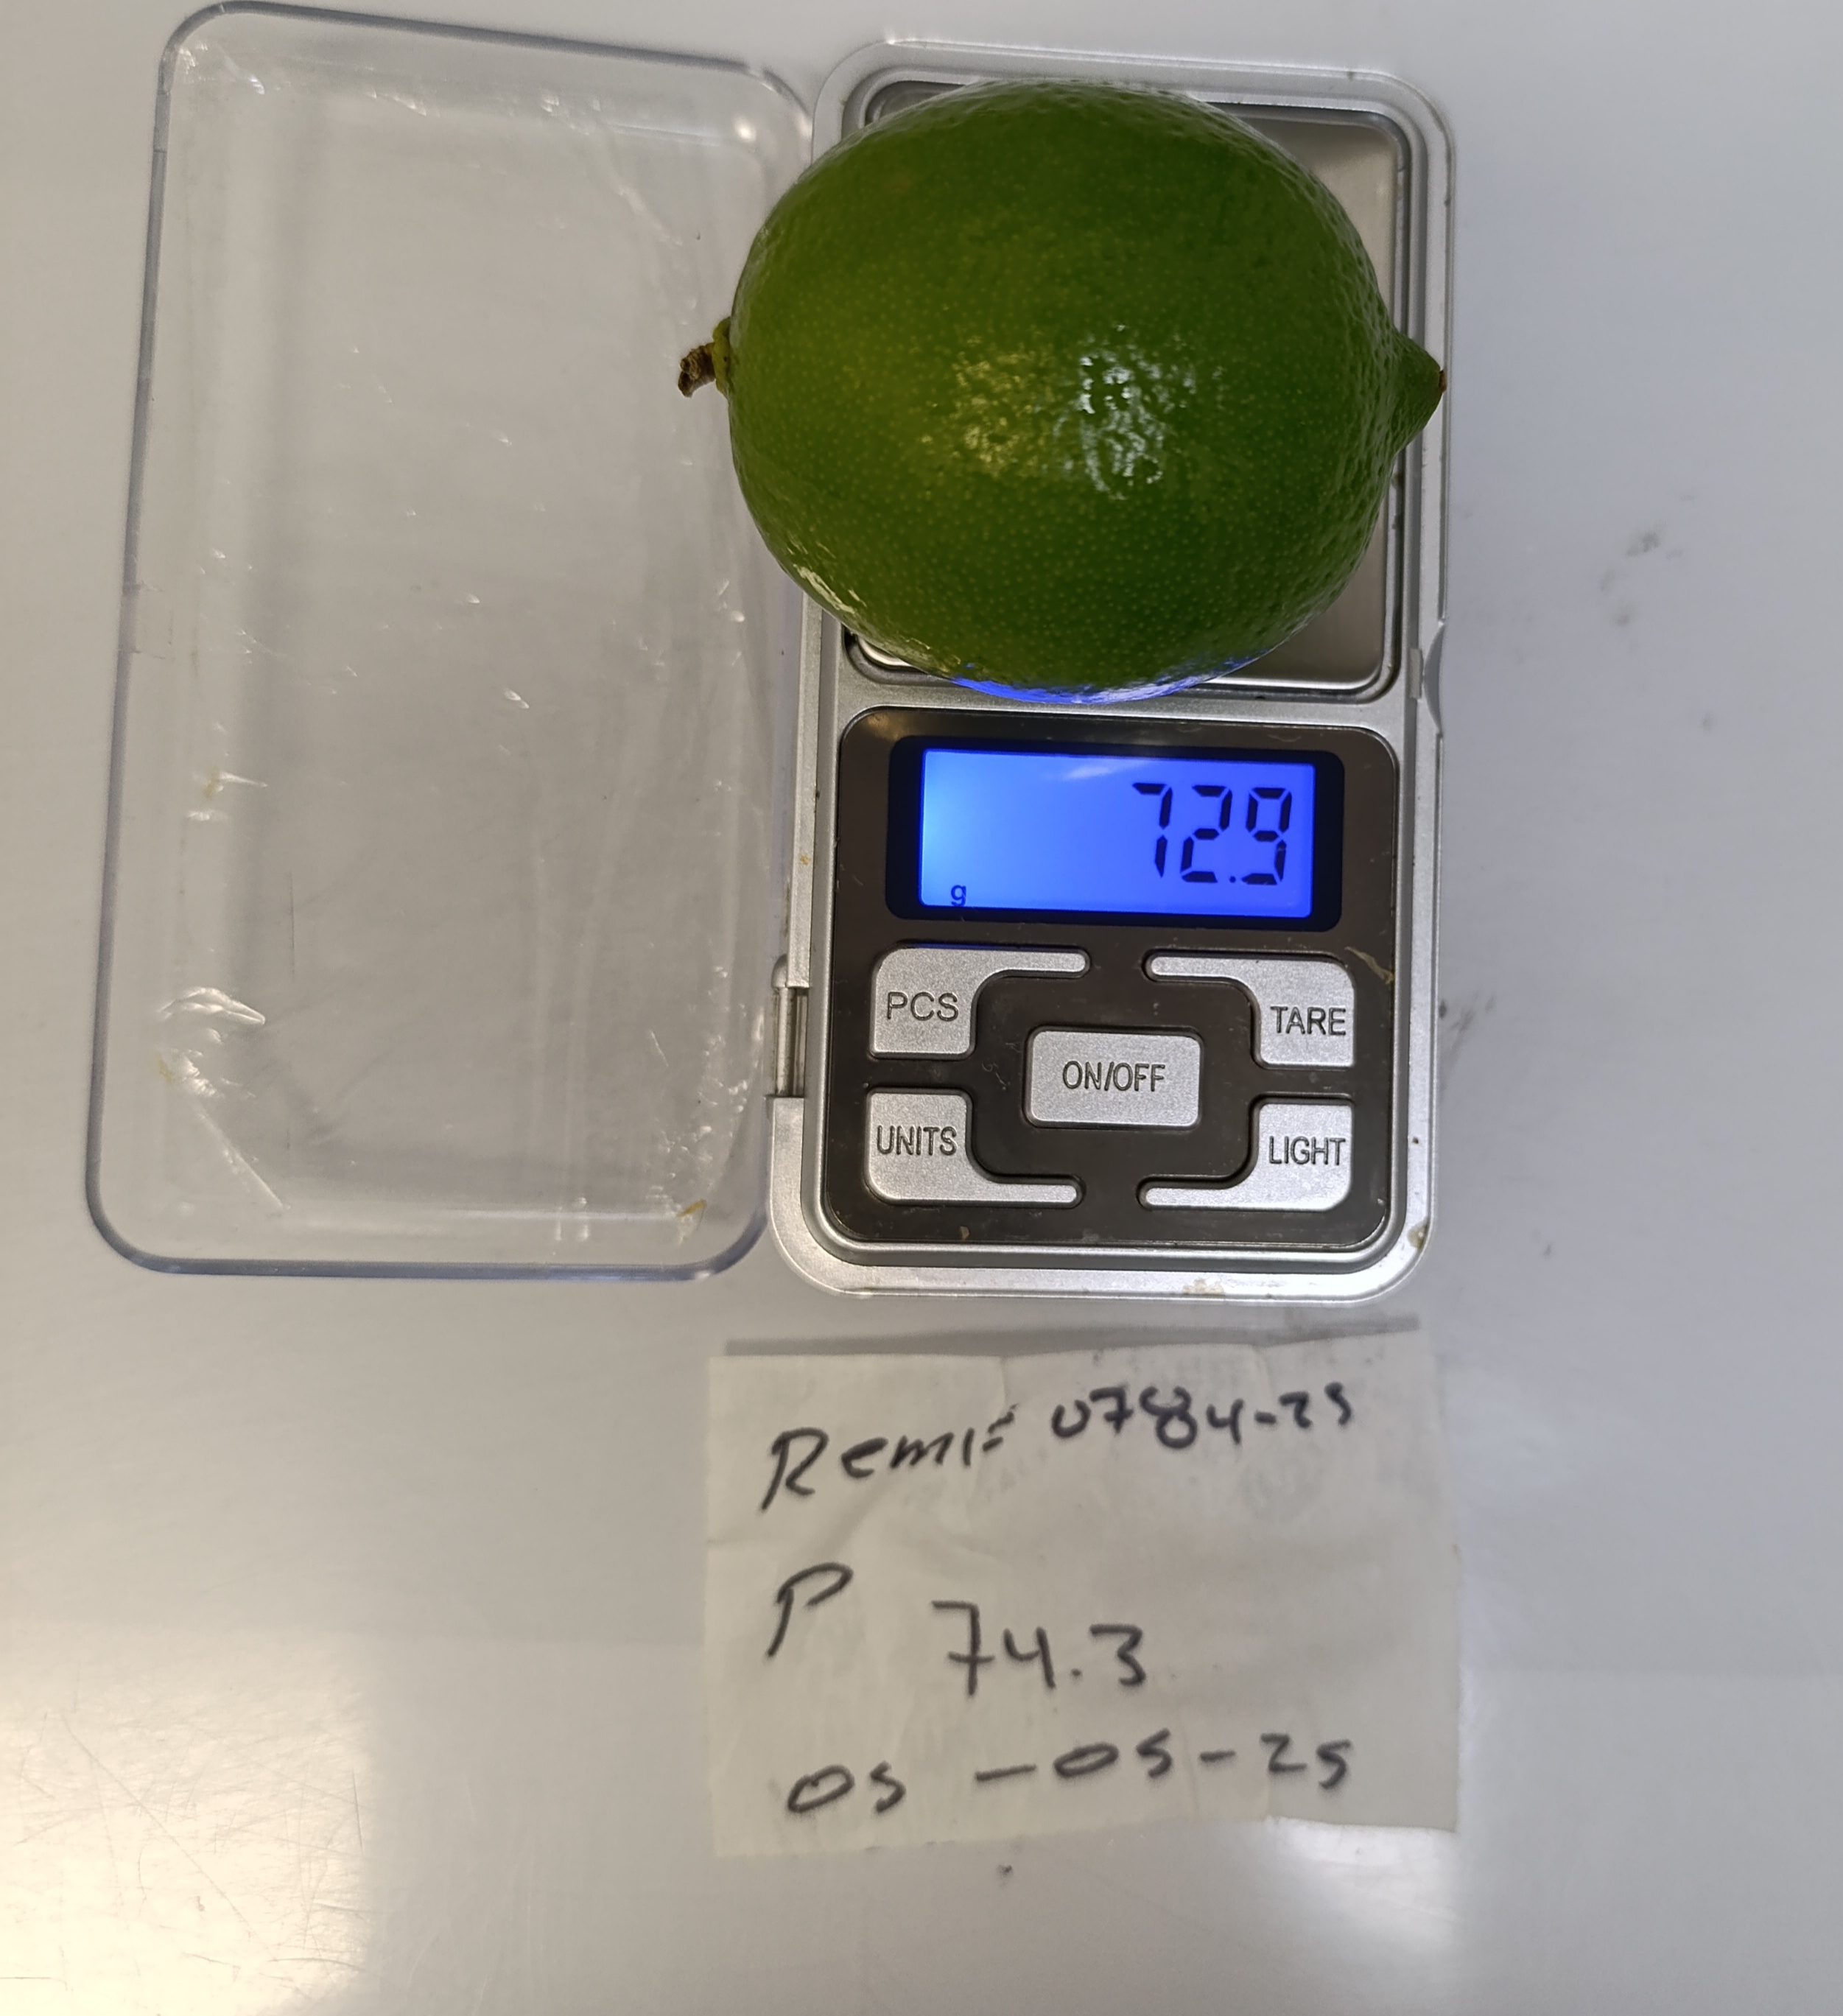 72.9
g
PCS
TARE
ON/OFF
UNITS
LIGHT
Remi= 0784-25
P
74.3
05-05-25